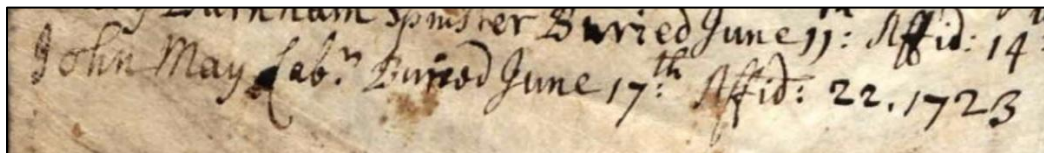 Burnham Spinster Buried June 11: Affid: 14:
John May Labr. Buried June 17th: Affid: 22. 1723